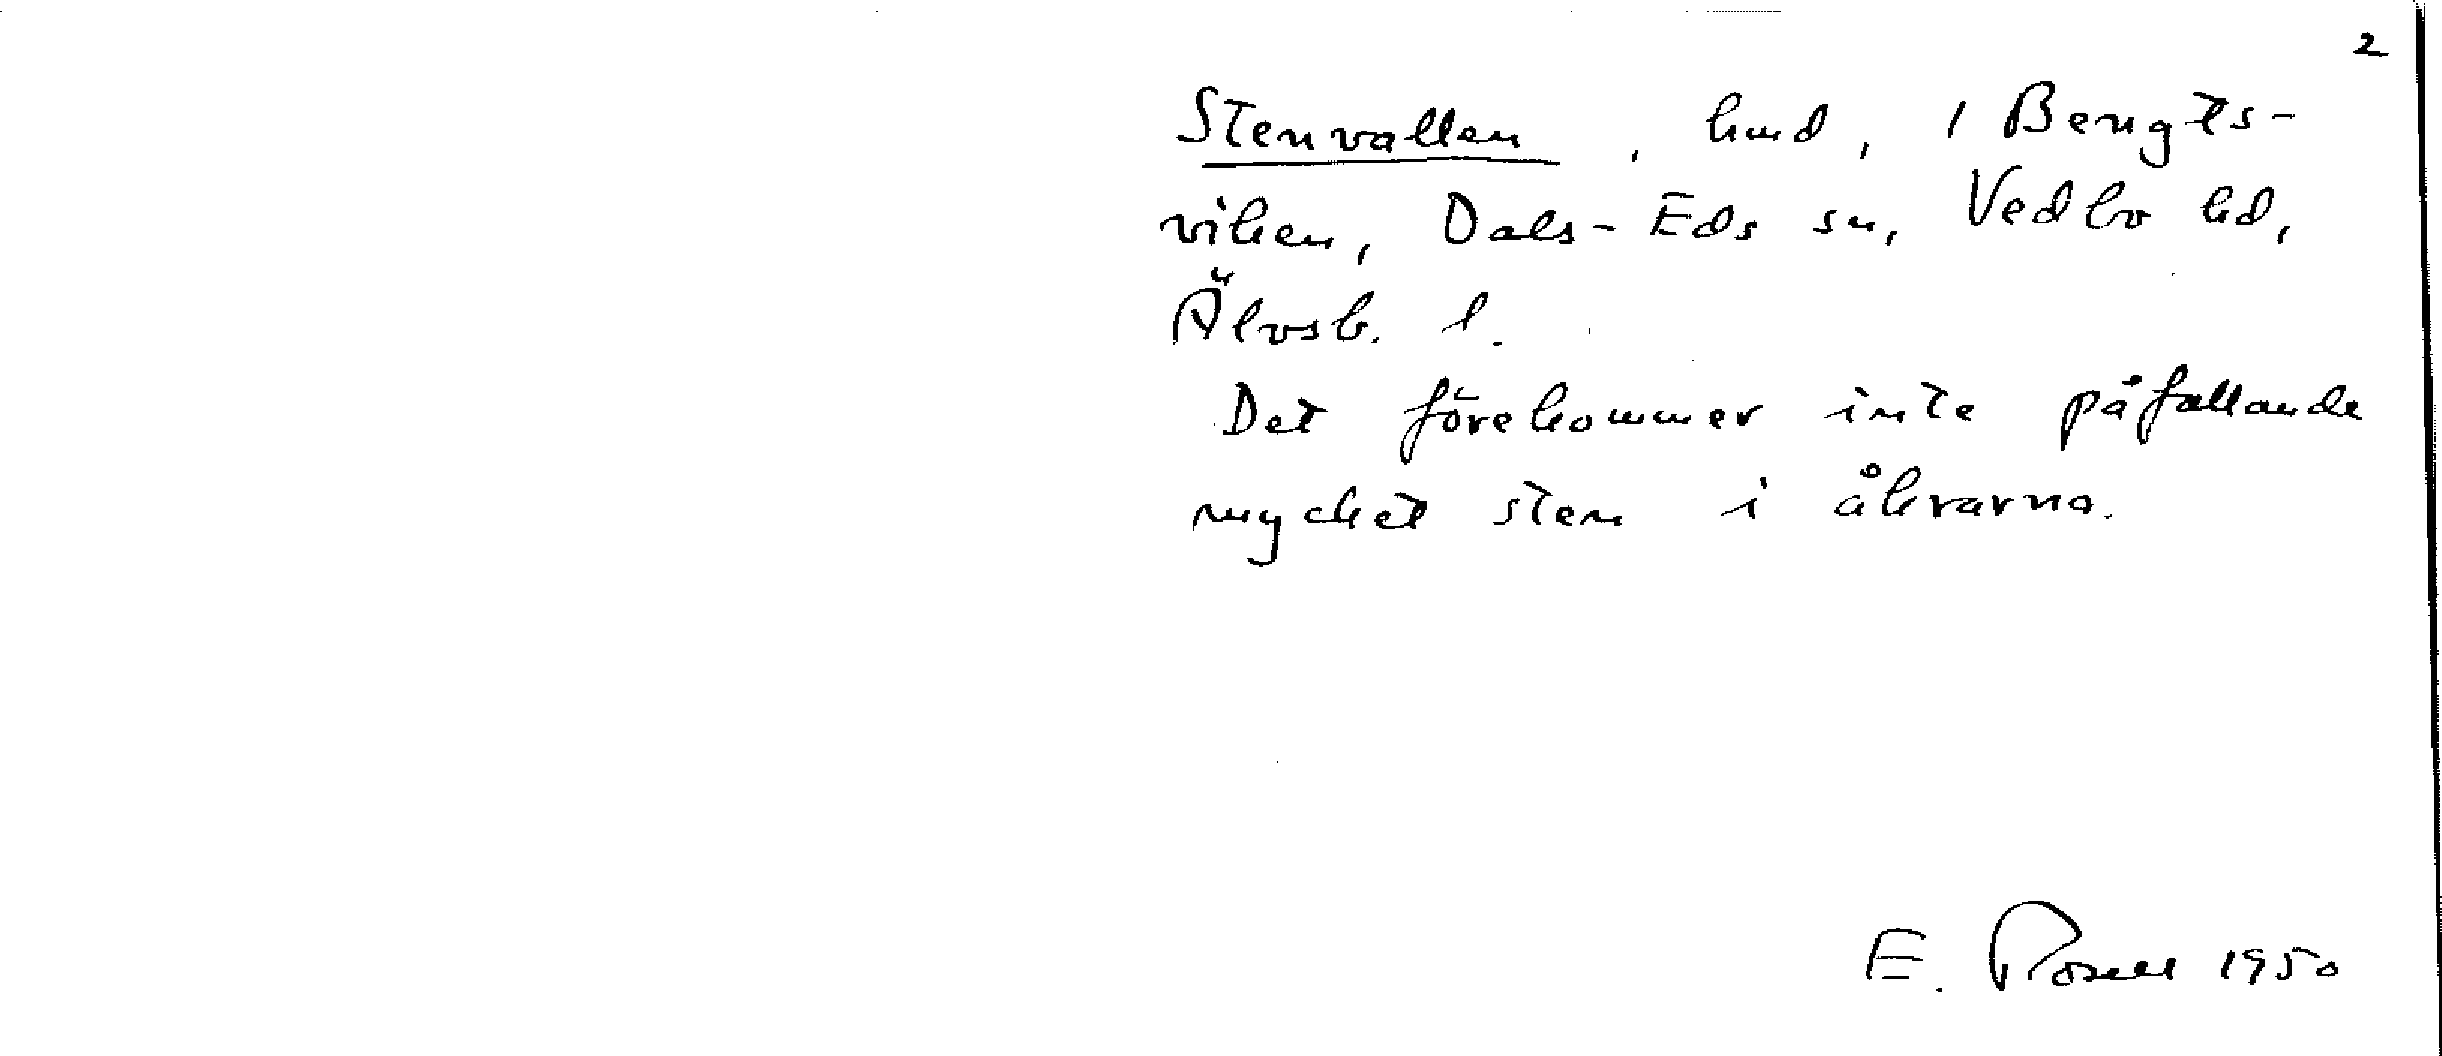 2
Stenvallen, hmd, 1 Bengts-
viken, Dals-Eds sn, Vedbo hd,
Älvsb. l.
Det förekommer inte påfallande
mycket sten i åkrarna.
E. Rosell 1950